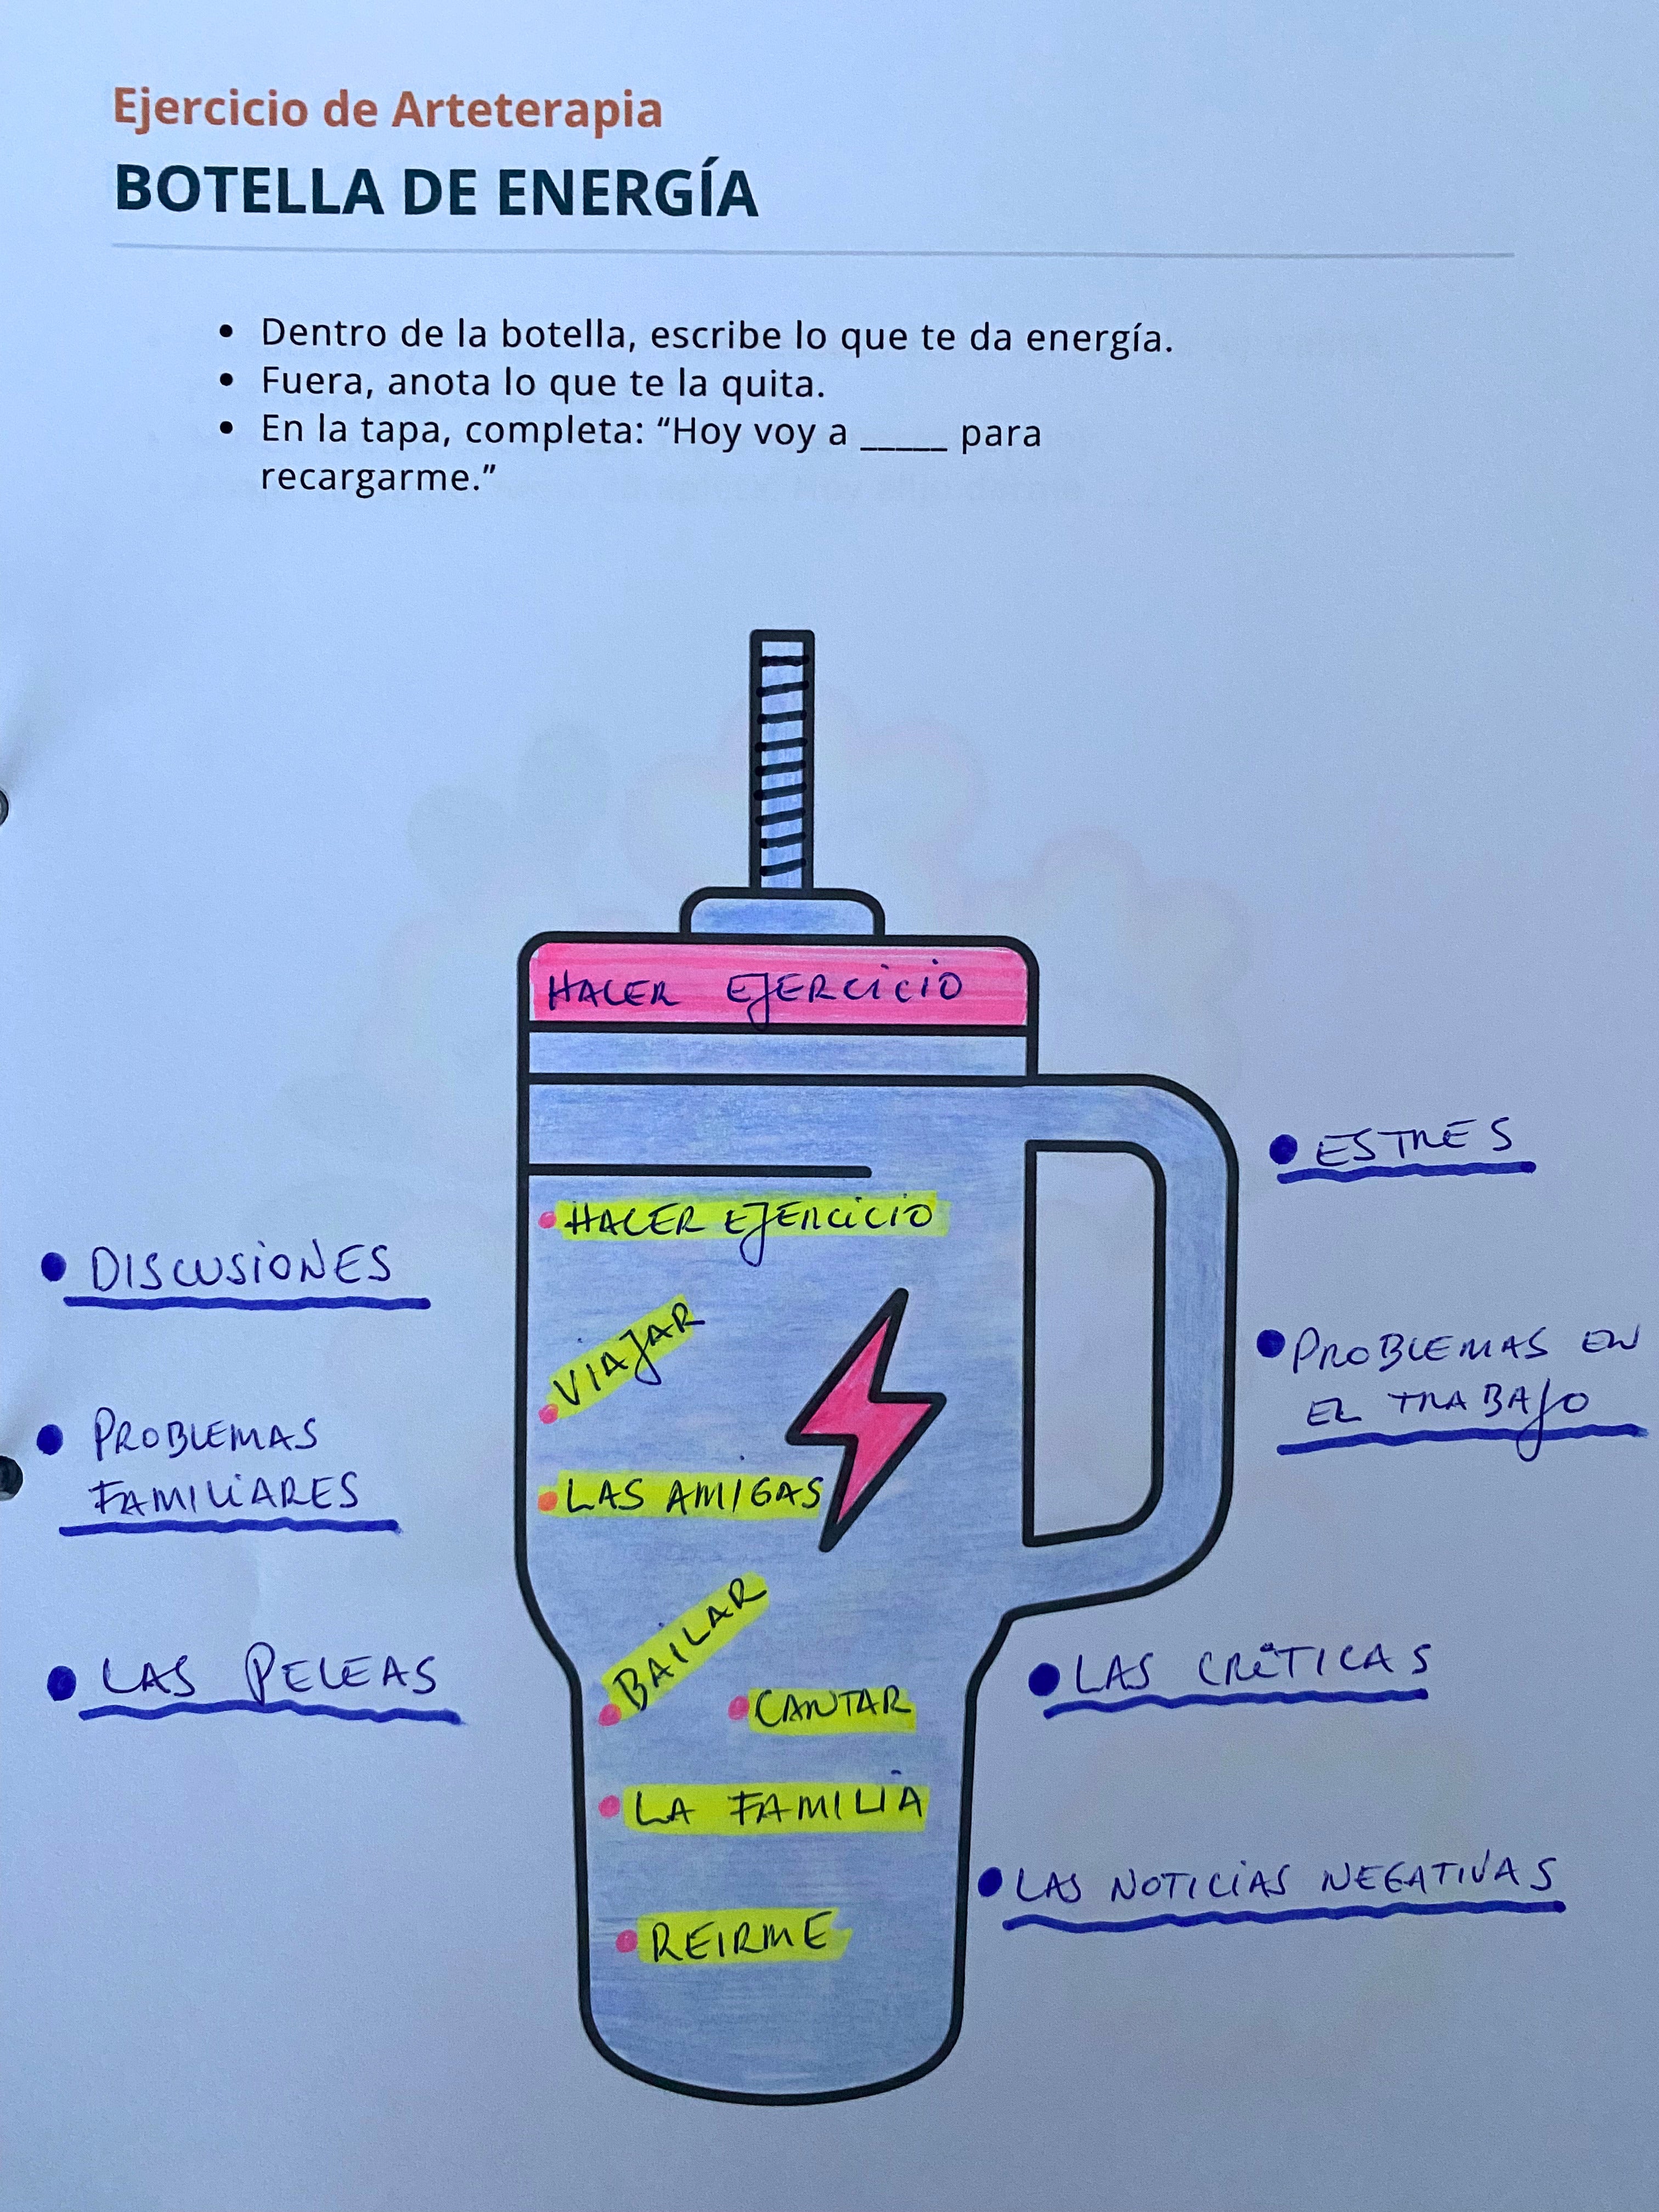 Ejercicio de Arteterapia
BOTELLA DE ENERGÍA
• Dentro de la botella, escribe lo que te da energía.
• Fuera, anota lo que te la quita.
• En la tapa, completa: “Hoy voy a _____ para
recargarme.”
HACER EJERCICIO
• HACER EJERCICIO
• VIAJAR
• LAS AMIGAS
• BAILAR
• CANTAR
• LA FAMILIA
• REIRME
• DISCUSIONES
• PROBLEMAS
FAMILIARES
• LAS PELEAS
• ESTRES
• PROBLEMAS EN
EL TRABAJO
• LAS CRÍTICAS
• LAS NOTICIAS NEGATIVAS